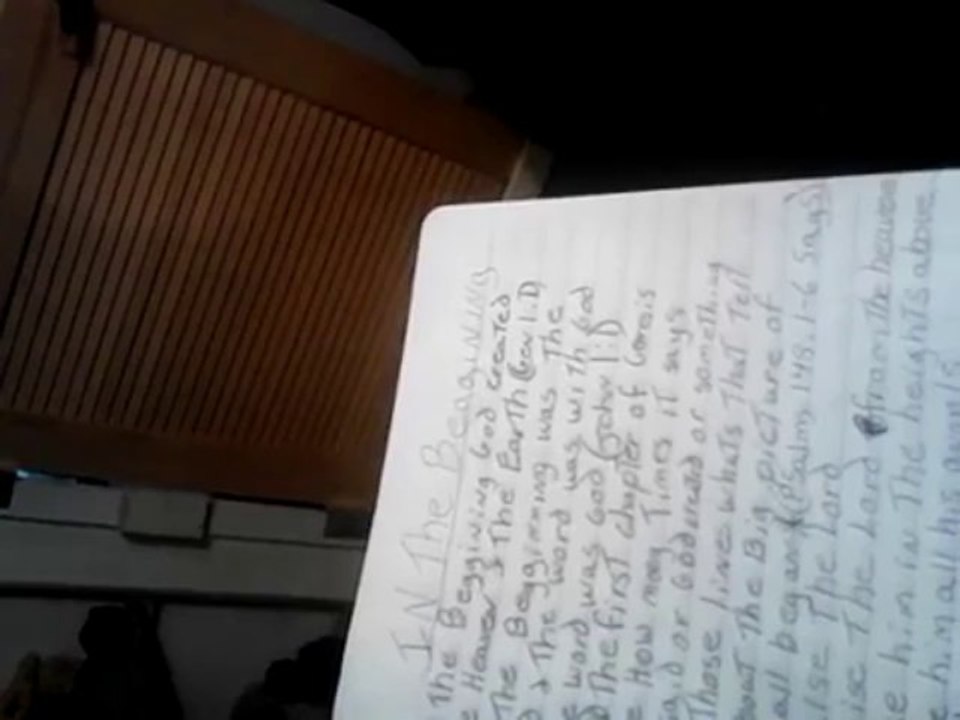 IN The Beagining
The Beggiving God created
Heaven & The Earth (Gen 1:1)
The Beggimming was The
& The word was The
word was with God
word was God (John 1:1)
The First chapter of Genis
How many Times it says
or God created or something
Those line whats That Tell
The Big picture of
all began (Psalms 148:1-6 Says)
The Lord
The Lord from the heaven
him in The heights above
him all his angels